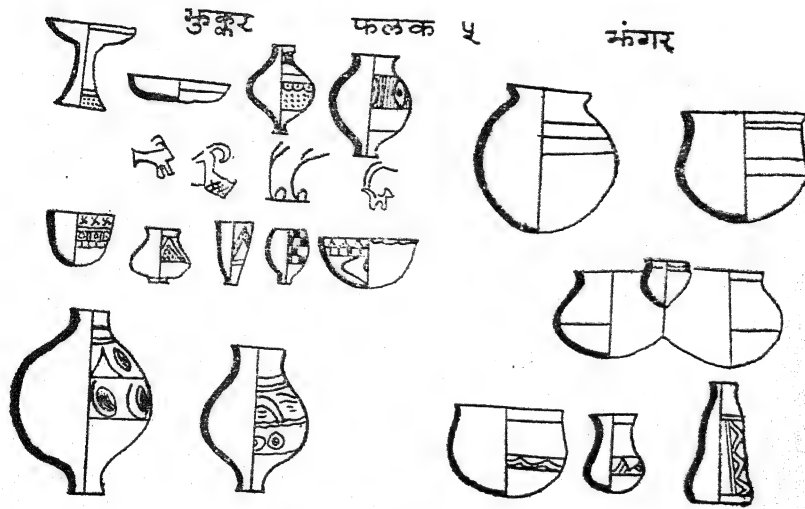 झुक्कर फलक ५ झंगर